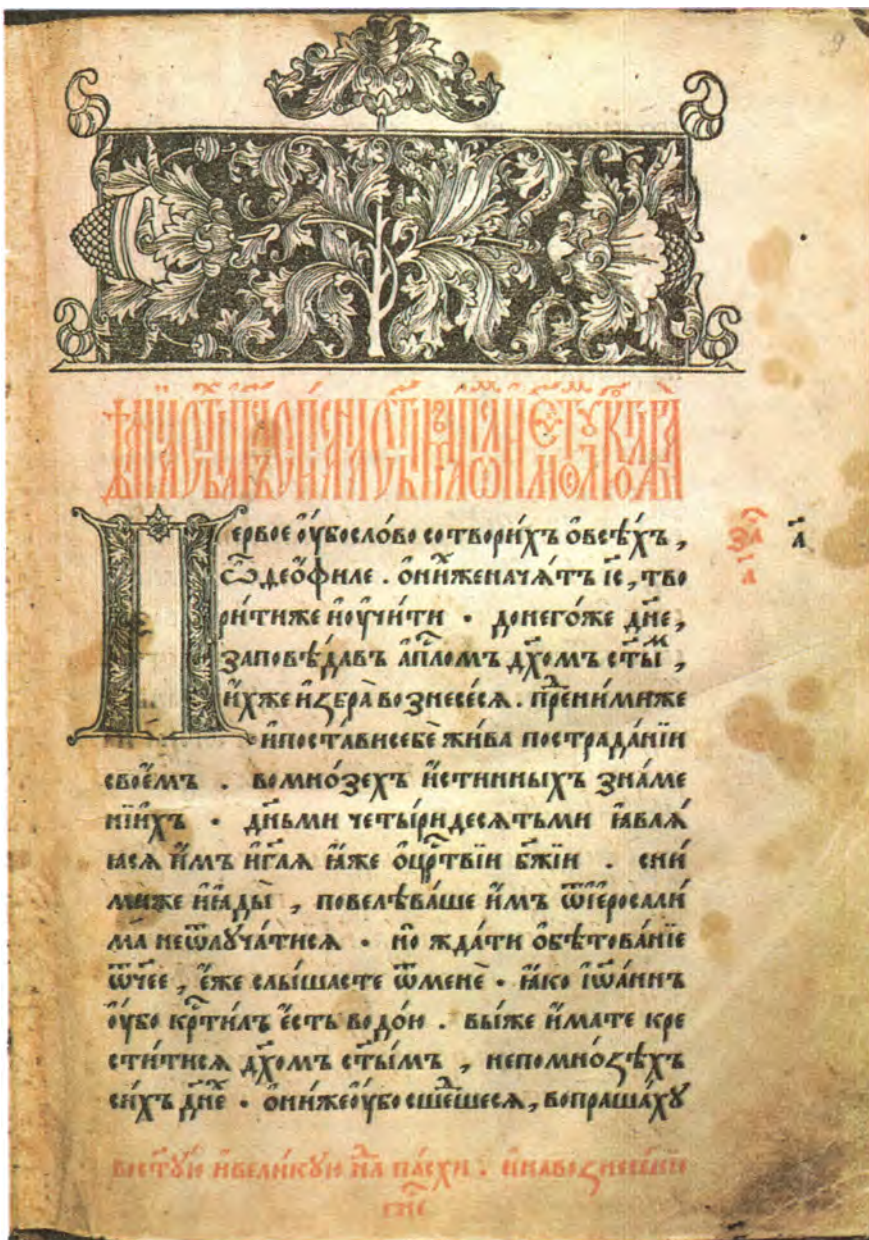 Первое оу҆бо сло́во сотвори́хъ ѻ҆всѣ́хъ ,
ѽ деѻ҆́филе . ѻ҆ни́хже нача́тъ і҆с҃ , тво
ри́тиже и҆оу҆чи́ти · донего́же дн҃е ,
запове́давъ а҆пⷭ҇ломъ дх҃омъ ст҃ыⷨ ,
и҆́хже и҆збра̀ вознесе́сѧ . пре́дни́миже
и҆поста́ви себѐ жи́ва пострада́нїи
свое҆́мъ . во мно́зехъ и҆́стинныхъ зна́ме
нїи҆хъ · дн҃ьми четы́ридесѧтьми ꙗ҆влѧ́
ꙗсѧ и҆̀мъ и҆гл҃ѧ ꙗ҆́же ѻ҆црⷭ҇твїи бж҃їи . сни́
миже и҆ꙗ҆ды̀ , повелѣва́ше и҆̀мъ ѿі҆еросали́
ма неѿлꙋча́тисѧ · но̀ жда́ти ѻ҆бѣтова́нїе
ѻ҆́ч҃ее , е҆́же слы́шасте ѿменѐ · ꙗ҆́ко і҆ѡа́ннъ
оу҆́бо крⷭ҇ти́лъ е҆́сть водо́ю . вы́же и҆́мате кре
сти́тисѧ дх҃омъ ст҃ы́мъ , непомно́зѣхъ
си́хъ дн҃е · ѻ҆ни́же оу҆́бо сше́дшесѧ , вопраша́хꙋ
за҄
а҃
а҃
востꙋ́ю и҆вели́кꙋю нлⷣѧ па́схи . и҆навознесе́нїе
гн҃е